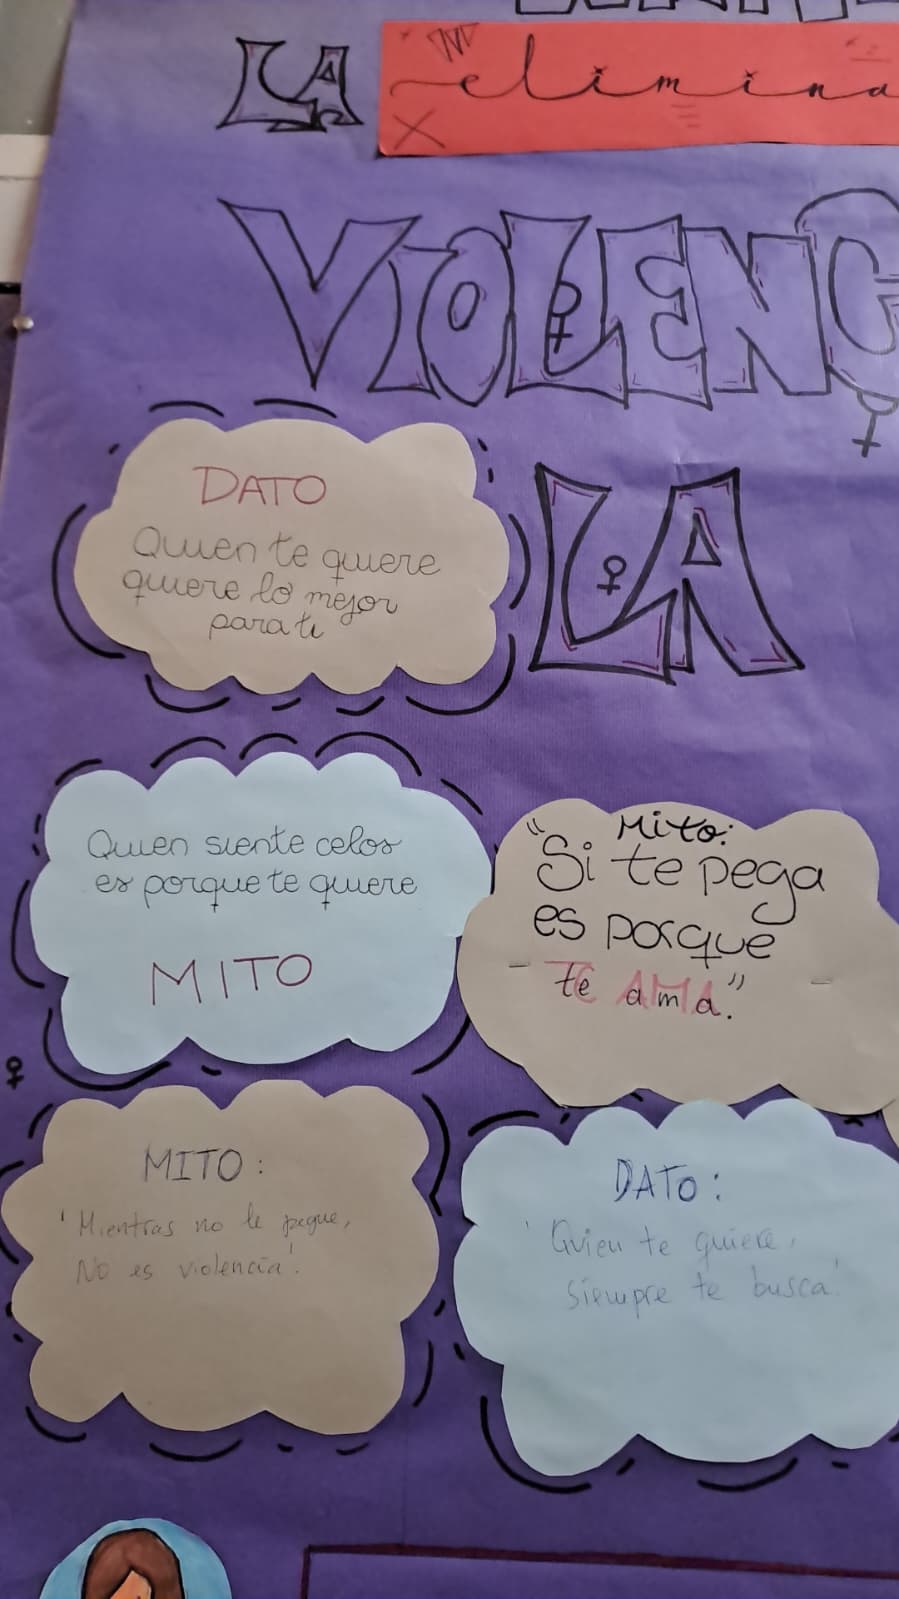 LA
elimina
VIOLENC
LA
DATO
Quien te quiere
quiere lo mejor
para ti
Quien siente celos
es porque te quiere
MITO
Mito:
"Si te pega
es porque
te ama".
MITO:
'Mientras no le pegue,
No es violencia'.
DATO:
'Quien te quiere,
siempre te busca'